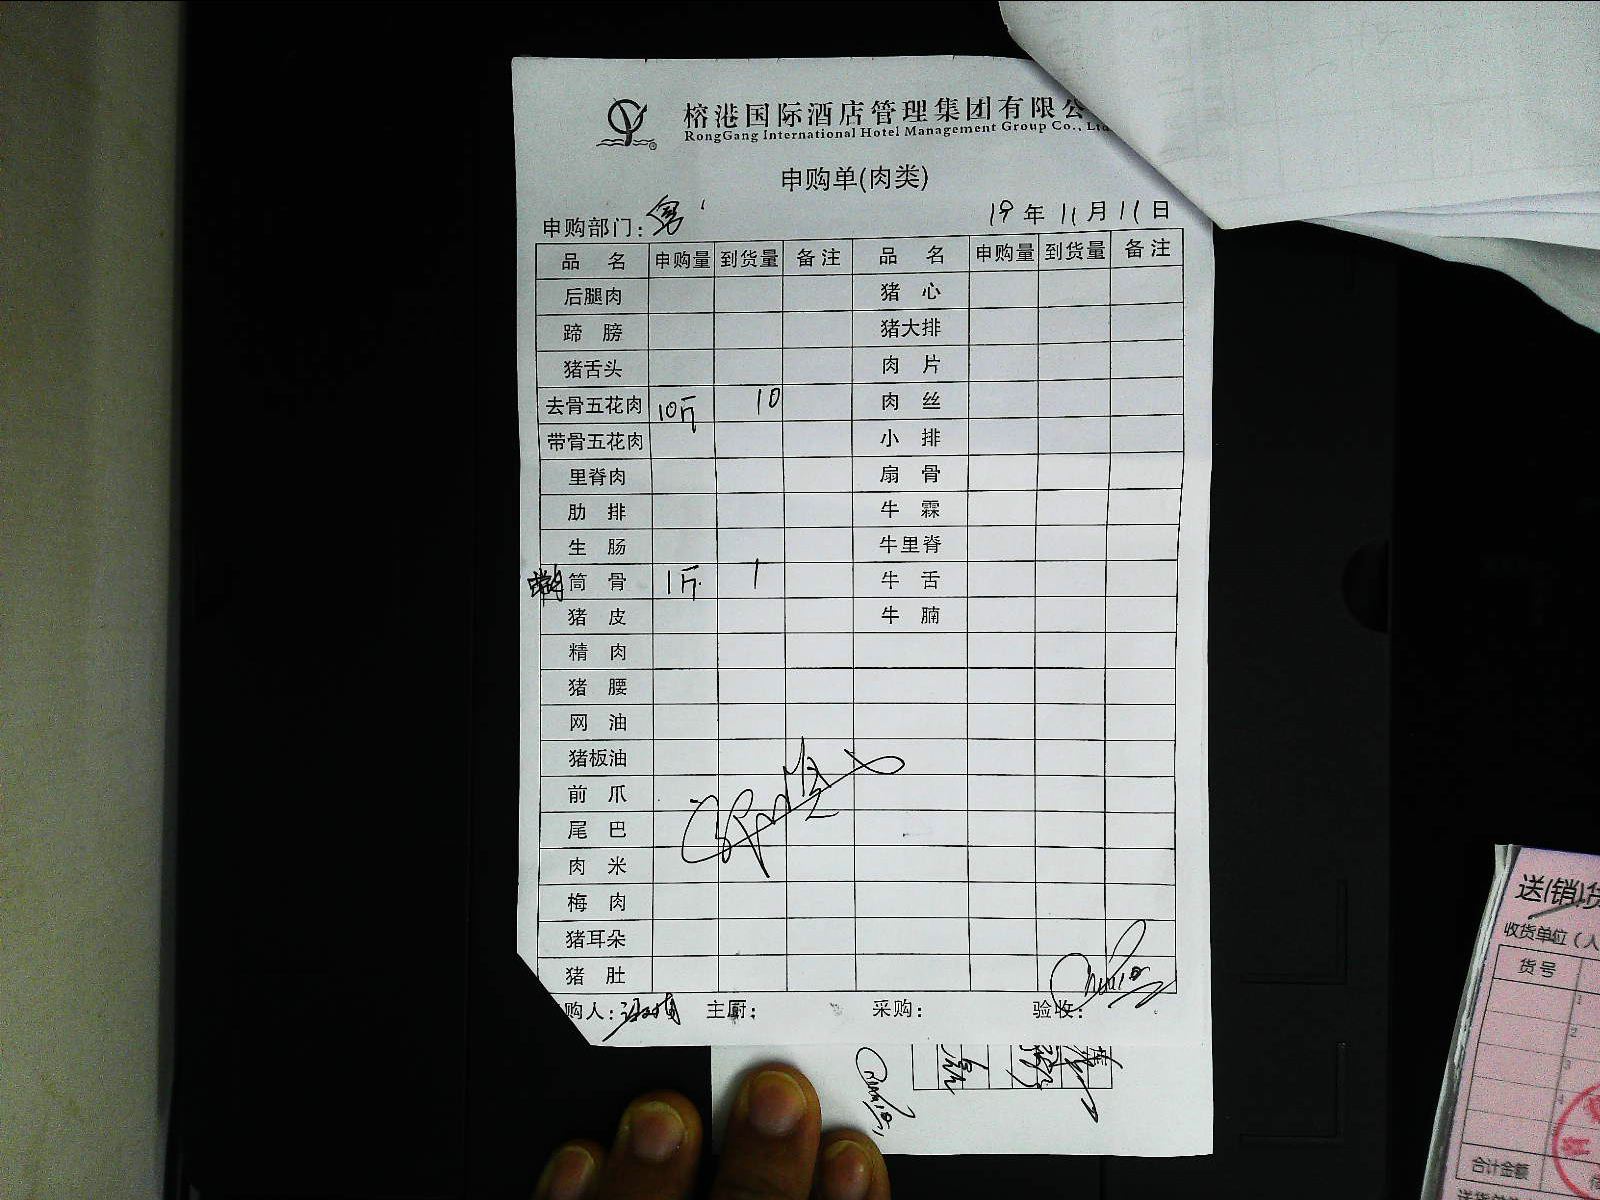 榕港国际酒店管理集团有限公
RongGang International Hotel Management Group Co., Ltd
申购单(肉类)
申购部门:
19年11月11日
品名 申购量 到货量 备注 品名 申购量 到货量 备注
后腿肉 猪心
蹄膀 猪大排
猪舌头 肉片
去骨五花肉 10斤 10 肉丝
带骨五花肉 小排
里脊肉 扇骨
肋排 牛霖
生肠 牛里脊
筒骨 1斤 1 牛舌
猪皮 牛腩
精肉
猪腰
网油
猪板油
前爪
尾巴
肉米
梅肉
猪耳朵
猪肚
购人: 主厨: 采购: 验收:
送(销)货
收货单位(人
货号
1
2
3
4
合计金额